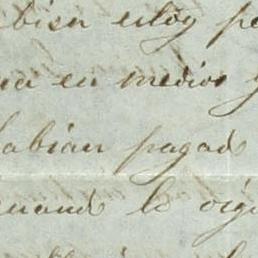 bien estoy pe
en medios y
habian pagad
cuand lo oig